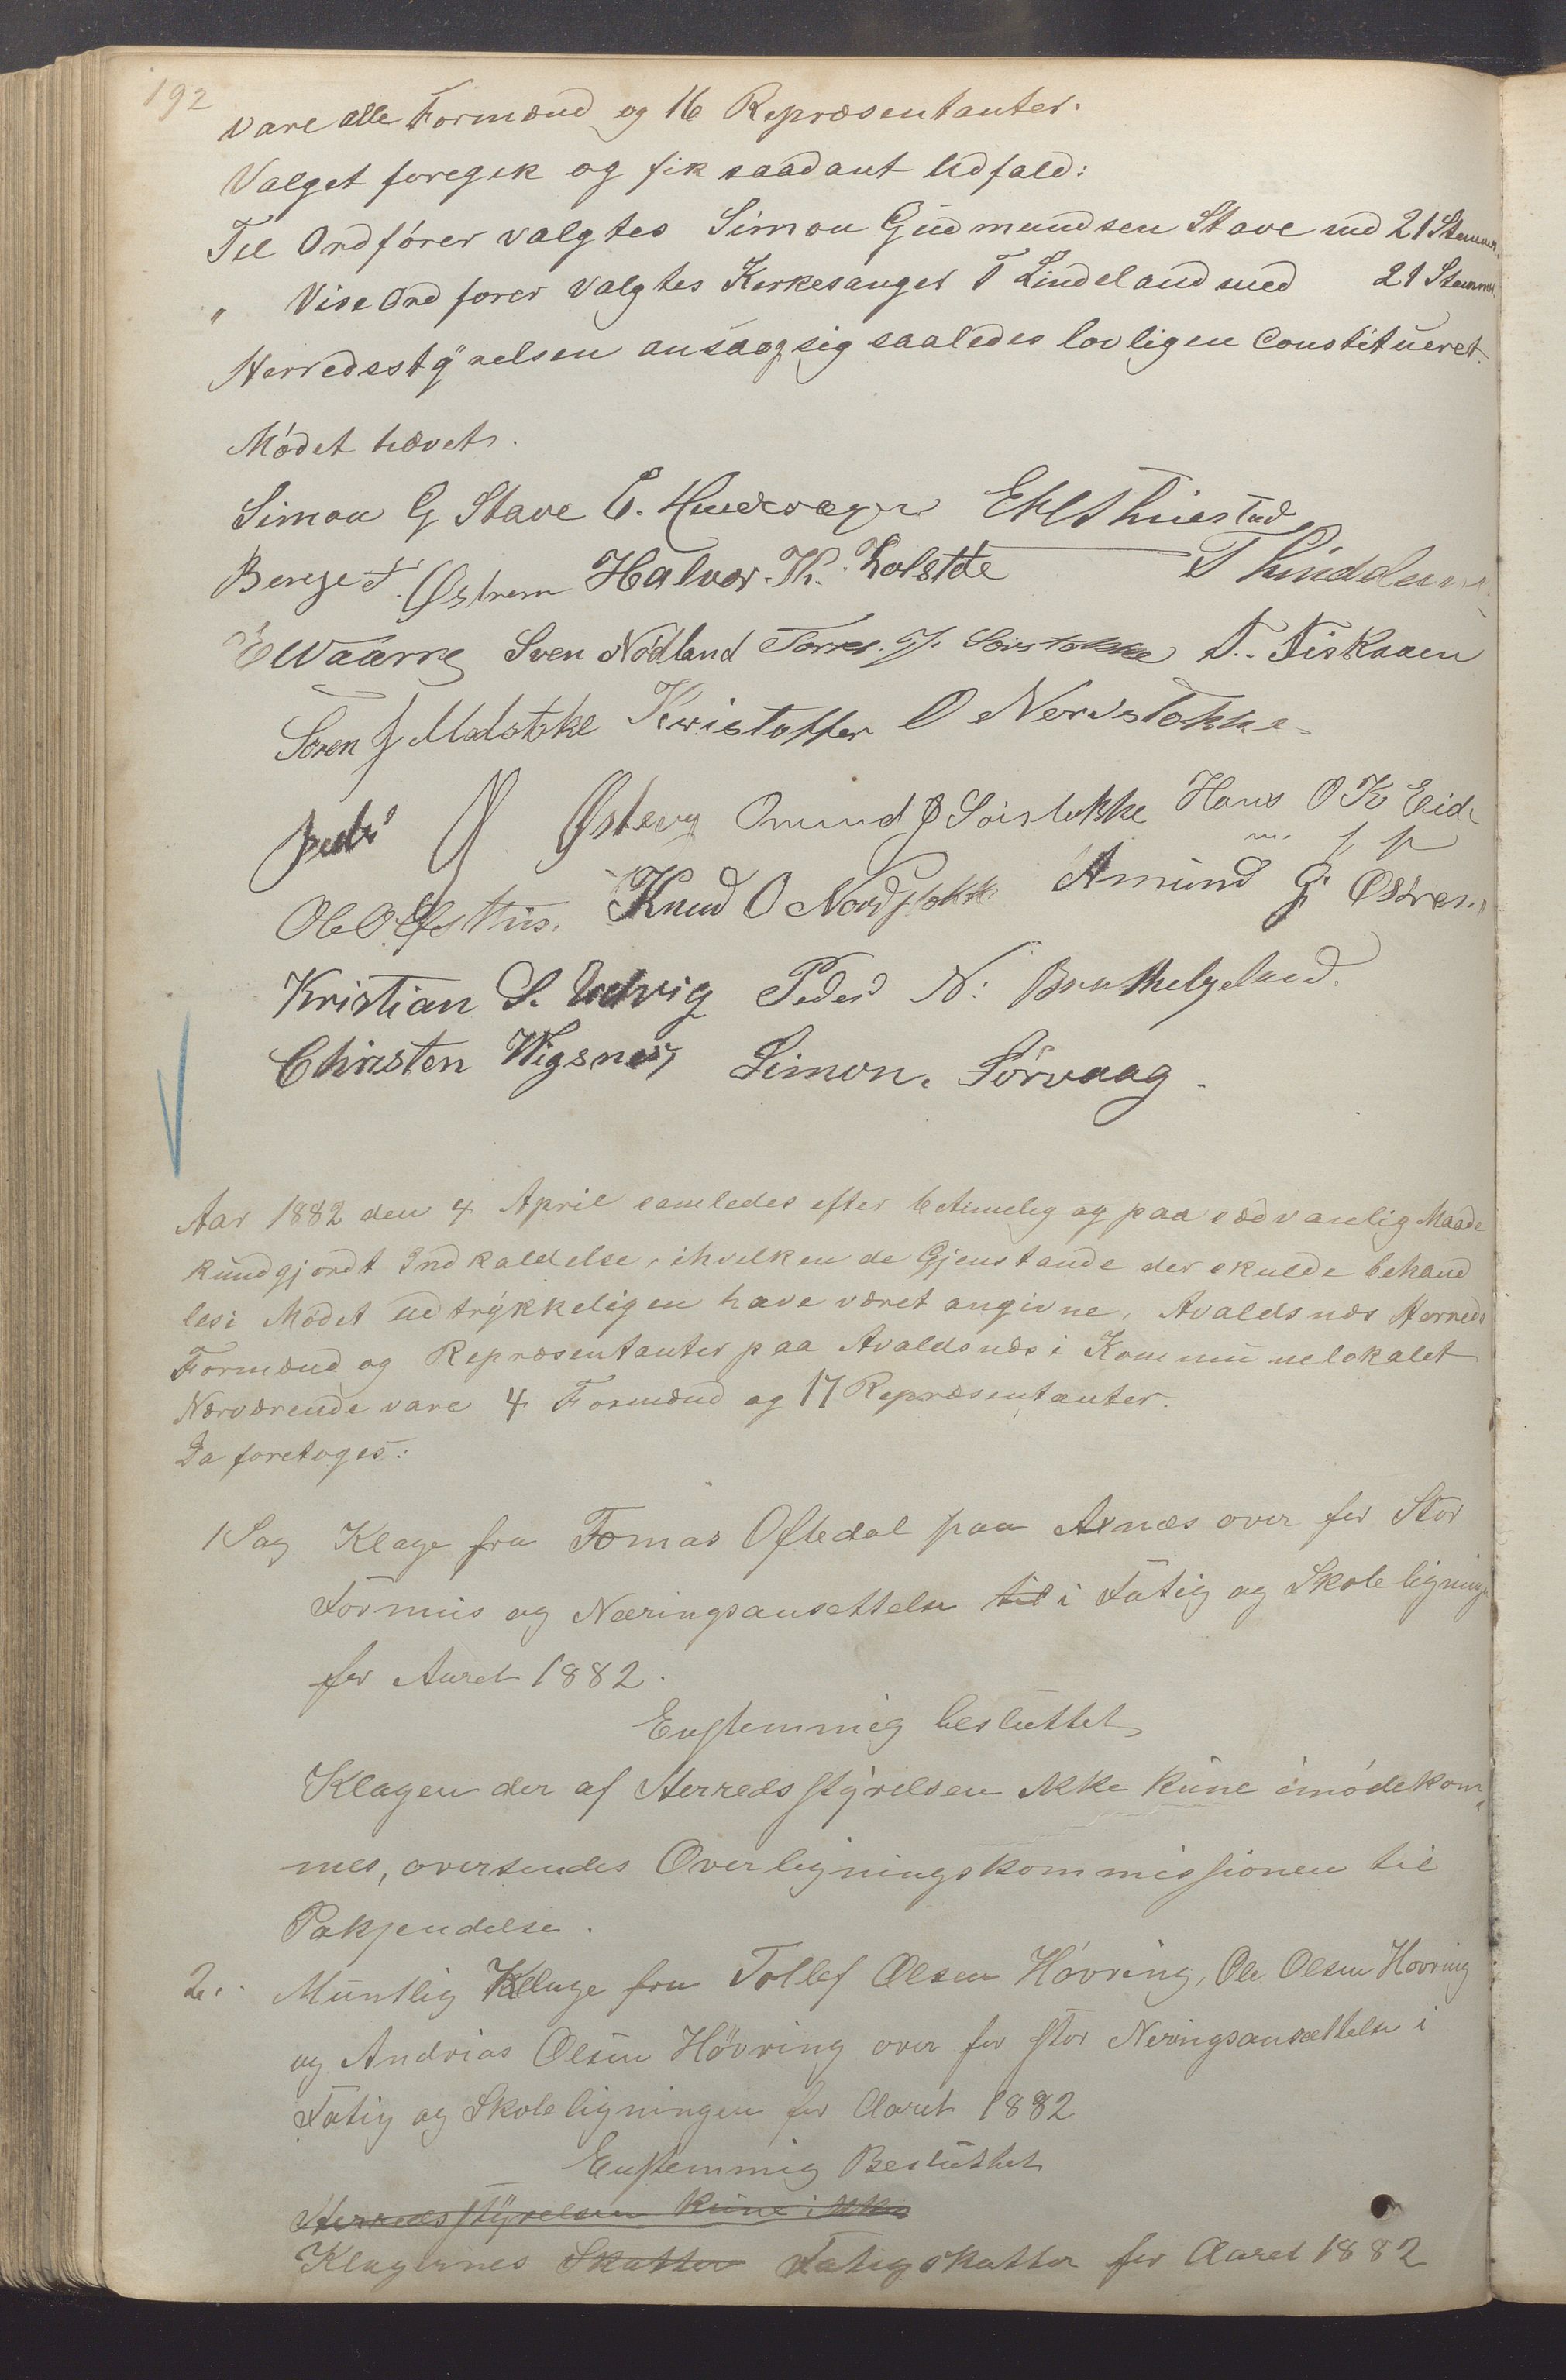 192
vare alle Formænd og 16 Repræsentanter.
Valget foregik og fik saadant Udfald:
Til Ordförer valgtes Simon Gudmundsen Stave med 21 Stemmer
" Vise Ordförer valgtes Kirkesanger T Lindeland med 21 Stemmer
Herredsstyrelsen ansaag sig saaledes lovligen Constitueret.
Mödet hævet.
Simon G Stave E.
Berge T. Østrem Halvor. Th. T
E Waarre Sven Nödland G. Sörstokke T. Fiskaaen
Sören J Mælstokke Kristoffer O Nordstokke
Peder J Østevig Omund J Sörstokke Hans O K Eide
m. f p
Ole O Østhus. Knud O Nordstokke Amund G Østrem
Kristian S. Udvig Peder N: Brathelgeland.
Christen Wigsnes Simon. Sörvaag.
Aar 1882 den 4 April samledes efter betimelig og paa sædvanlig Maade
kundgjordt Indkaldelse, ihvilken de Gjenstande der skulde behand
les i Mödet udtrykkeligen have været angivne, Avaldsnæs Herreds
Formænd og Repræsentanter paa Avaldsnæs i Kommunelokalet
Nærværende vare 4 Formænd og 17 Repræsentanter.
Da foretoges:
1 Sag Klage fra Tomas Oftedal paa Arnæs over for Stor
Formus og Næringsansettelse til i Fatig og Skoleligningen
for Aaret 1882.
Enstemmig besluttet
Klagen der af Herredsstyrelsen ikke kune imödekom
mes, oversendes Overligningskommissionen til
Pakjendelse.
2. Muntlig Klage fra Tollef Olsen Hövring, Ole Olsen Hövring
og Andrias Olsen Hövring over for stor Neringsansættelse i
Fatig og Skoleligningen for Aaret 1882
Enstemmig Besluttet
Herredsstyrelsen kune ikke
Klagernes Skatter Fatigskatter for Aaret 1882